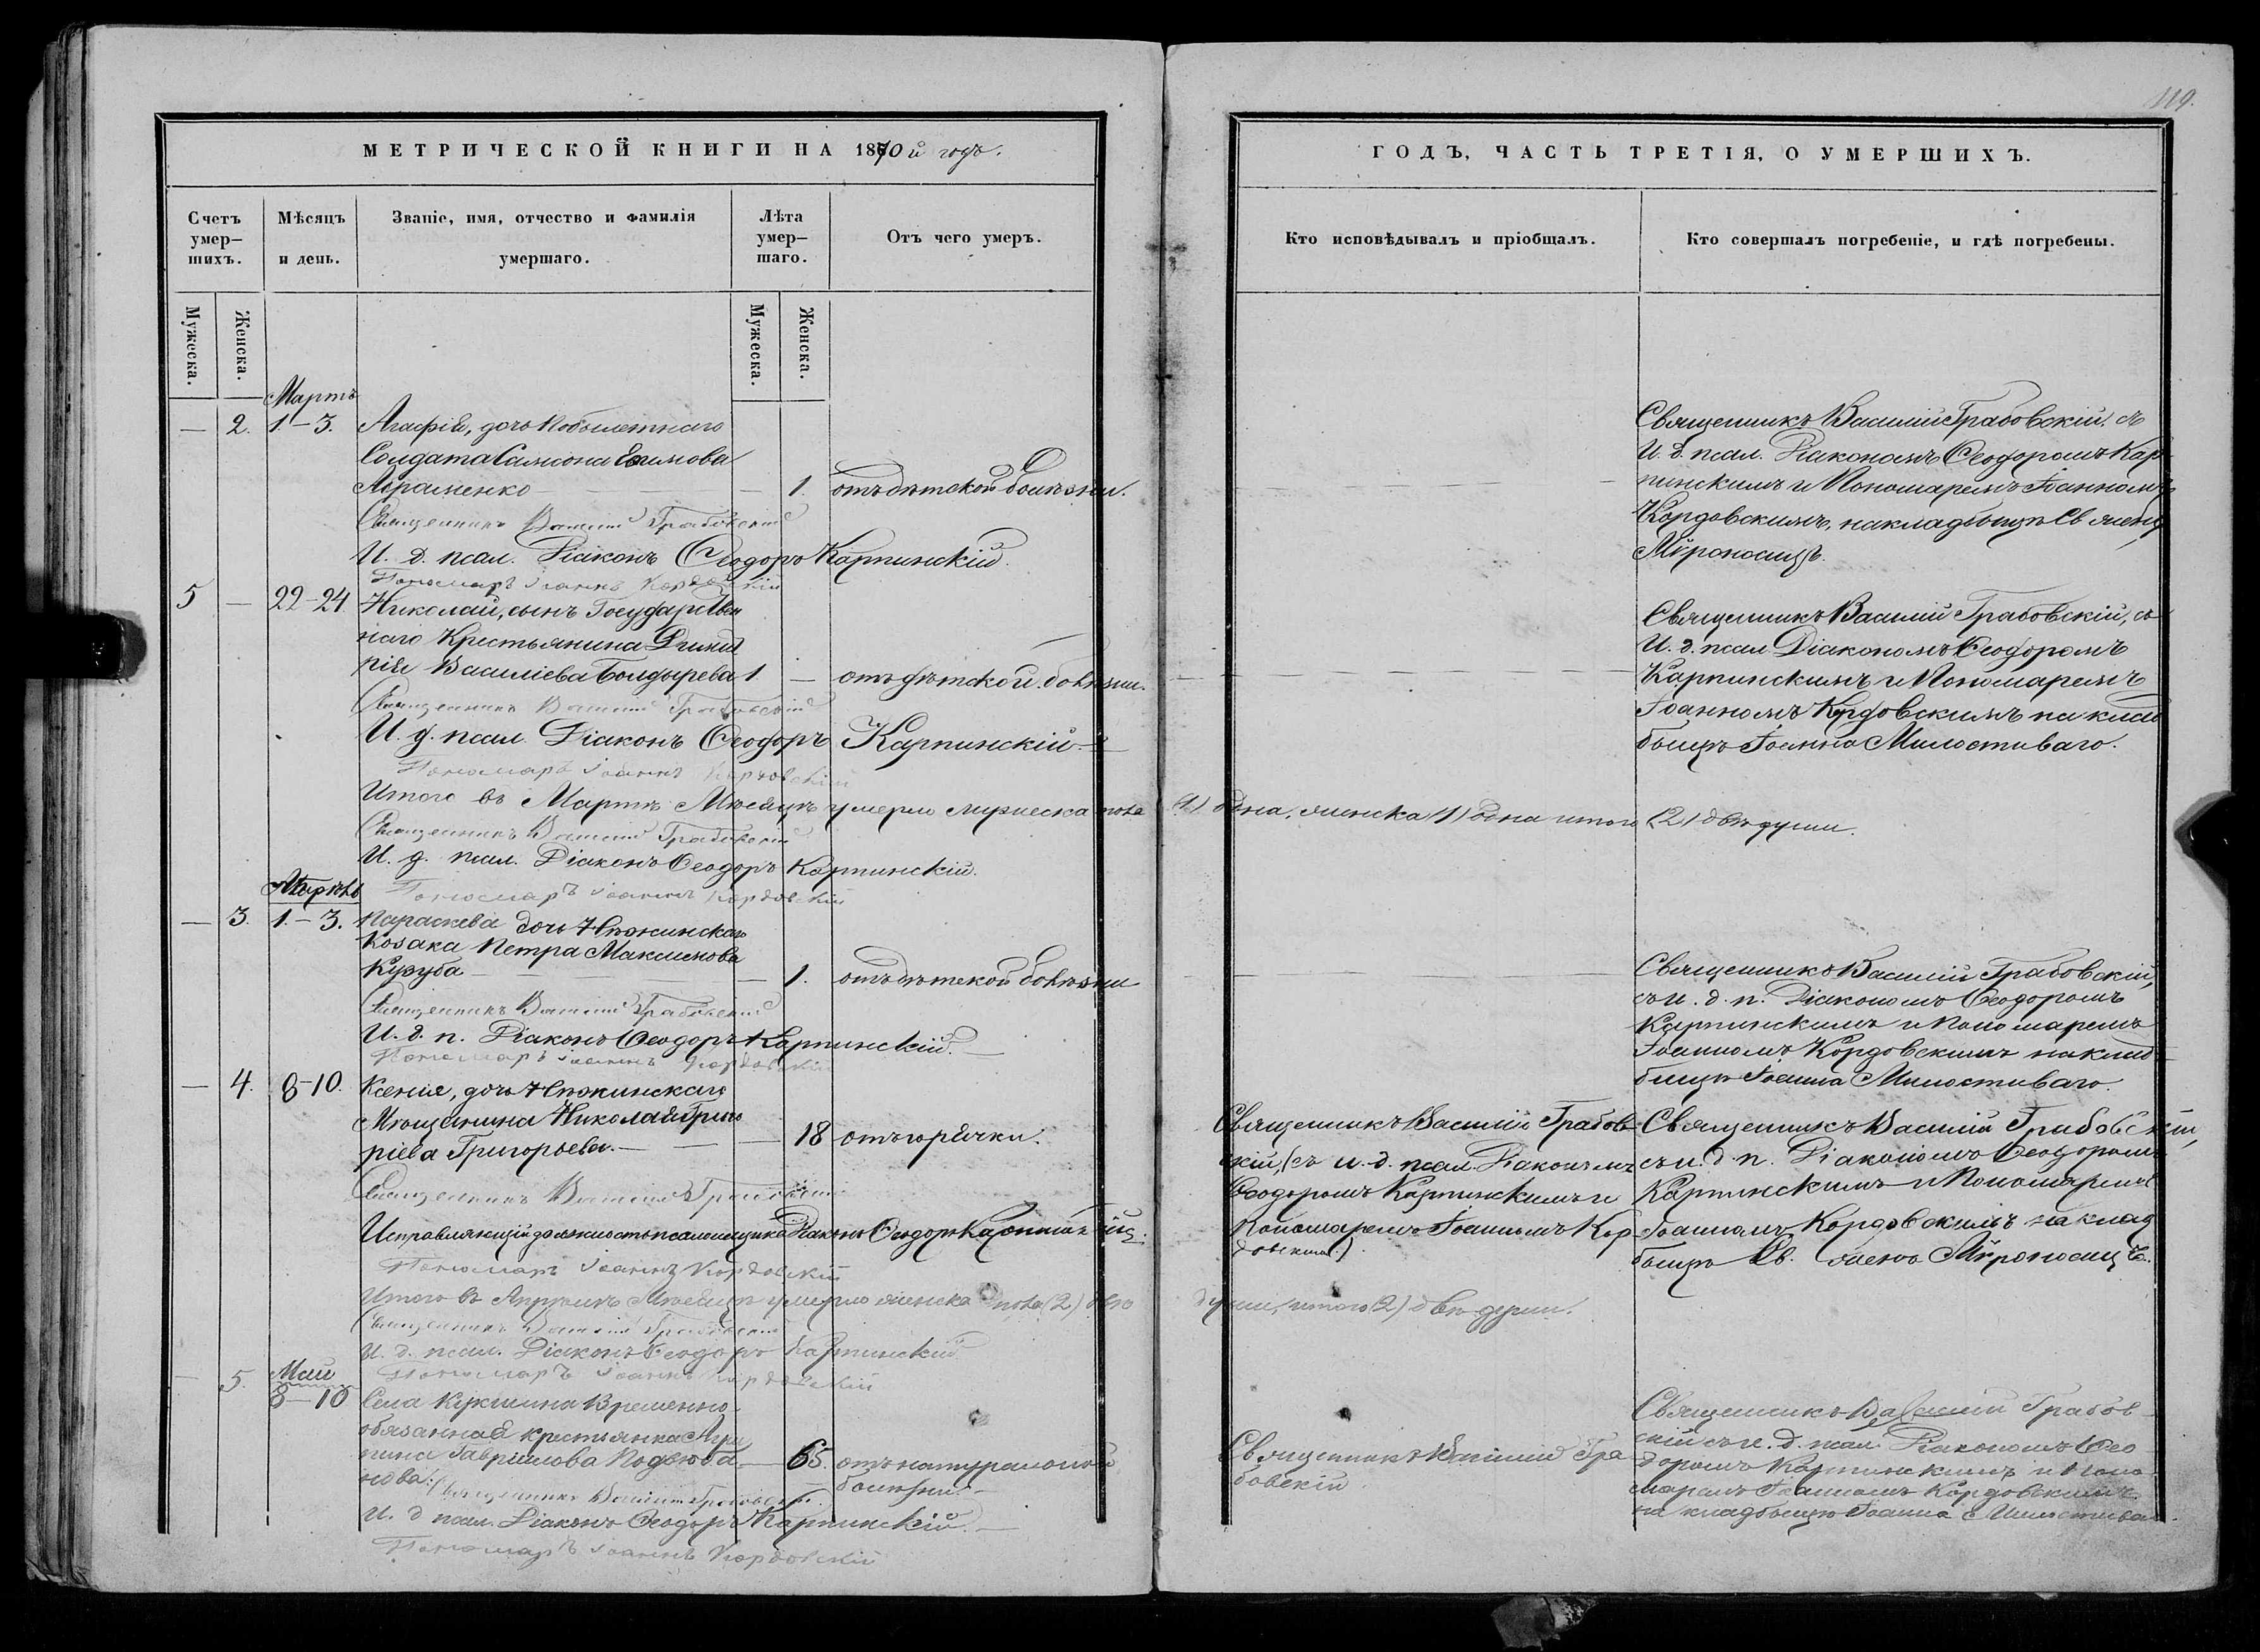 МЕТРИЧЕСКОЙ КНИГИ НА 1870й годъ.
Счетъ умер–шихъ.
Мѣсяцъ и день.
Званіе, имя, отчество и фамилія умершаго.
Лѣта умер–шаго.
Отъ чего умеръ.
Мужеска.
Женска.
Мужеска.
Женска.
Мартъ
— 2. 1.–3. Агафія, дочь
Солдата Самсона Ефимова
Авраменко — 1. отъ дѣтской болѣзни.
Священникъ Василій Грабовскій
И. д. псал. Діаконъ Ѳеодоръ Карпинскій.
Пономарь Іоаннъ Кордовскій
5 — 22–24 Николай, сынъ Государствен
наго Крестьянина Димит
рія Василіева Болдырева 1 — отъ дѣтской болѣзни.
Священникъ Василій Грабовскій
И. д. псал. Діаконъ Ѳеодоръ Карпинскій
Пономарь Іоаннъ Кордовскій
Итого въ Мартѣ Мѣсяцѣ умерло мужеска пола
Священникъ Василій Грабовскій
И. д. псал. Діаконъ Ѳеодоръ Карпинскій.
Апрѣль
Пономарь Іоаннъ Кордовскій
— 3. 1.–3. Параскева дочь Нѣжинскаго
Козака Петра Максимова
Кузуба — 1. отъ дѣтской болѣзни
Священникъ Василій Грабовскій
И. д. п. Діаконъ Ѳеодоръ Карпинскій.
Пономарь Іоаннъ Кордовскій
— 4. 8–10. Ксенія, дочь Нѣжинскаго
Мѣщанина Николая Григо
ріева Григорьева. — 18 отъ горячки.
Священникъ Василій Грабовскій
Исправляющій должность псаломщика Діаконъ Ѳеодоръ Карпинскій.
Пономарь Іоаннъ Кордовскій
Итого въ Апрѣлѣ Мѣсяцѣ умерло женска пола (2) двѣ
Священникъ Василій Грабовскій
И. д. псал. Діаконъ Ѳеодоръ Карпинскій
Май
Пономарь Іоаннъ Кордовскій
— 5. 8–10 Села Кукшина Временно-
обязанная крестьянка Агри
пина Гавріилова
нова. — 65. отъ натуральной
болѣзни.
Священникъ Василій Грабовскій.
И. д. псал. Діаконъ Ѳеодоръ Карпинскій.
Пономарь Іоаннъ Кордовскій
119.
ГОДЪ, ЧАСТЬ ТРЕТІЯ, О УМЕРШИХЪ.
Кто исповѣдывалъ и пріобщалъ.
Кто совершалъ погребеніе, и гдѣ погребены.
Священникъ Василій Грабовскій, съ
И. д. псал. Діакономъ Ѳеодоромъ Кар
пинскимъ и Пономаремъ Іоанномъ
Кордовскимъ, на кладбищѣ Св женъ
Мѵроносицъ.
Священникъ Василій Грабовскій, съ
И. д. псал Діакономъ Ѳеодоромъ
Карпинскимъ и Пономаремъ
Іоанномъ Кордовскимъ на клад
бищѣ Іоанна Милостиваго.
(1) одна, женска (1) одна итого (2) двѣ души.
Священникъ Василій Грабовскій,
съ и. д. п. Діакономъ Ѳеодоромъ
Карпинскимъ и Пономаремъ
Іоанномъ Кордовскимъ на клад
бищѣ Іоанна Милостиваго.
Священникъ Василій Грабов
скій, (съ и. д. псал. Діакономъ
Ѳеодоромъ Карпинскимъ и
Пономаремъ Іоанномъ Кор
довскимъ).
Священникъ Василій Грабовскій,
съ и. д. п. Діакономъ Ѳеодоромъ
Карпинскимъ и Пономаремъ
Іоанномъ Кордовскимъ на клад
бищѣ Св. женъ Мѵроносицъ.
души, итого (2) двѣ души.
Священникъ Василій Гра
бовскій
Священникъ Василій Грабов
скій съ и. д. псал. Діакономъ Ѳео
доромъ Карпинскимъ и Поно
маремъ Іоанномъ Кордовскимъ
на кладбищѣ Іоанна Милостиваго.